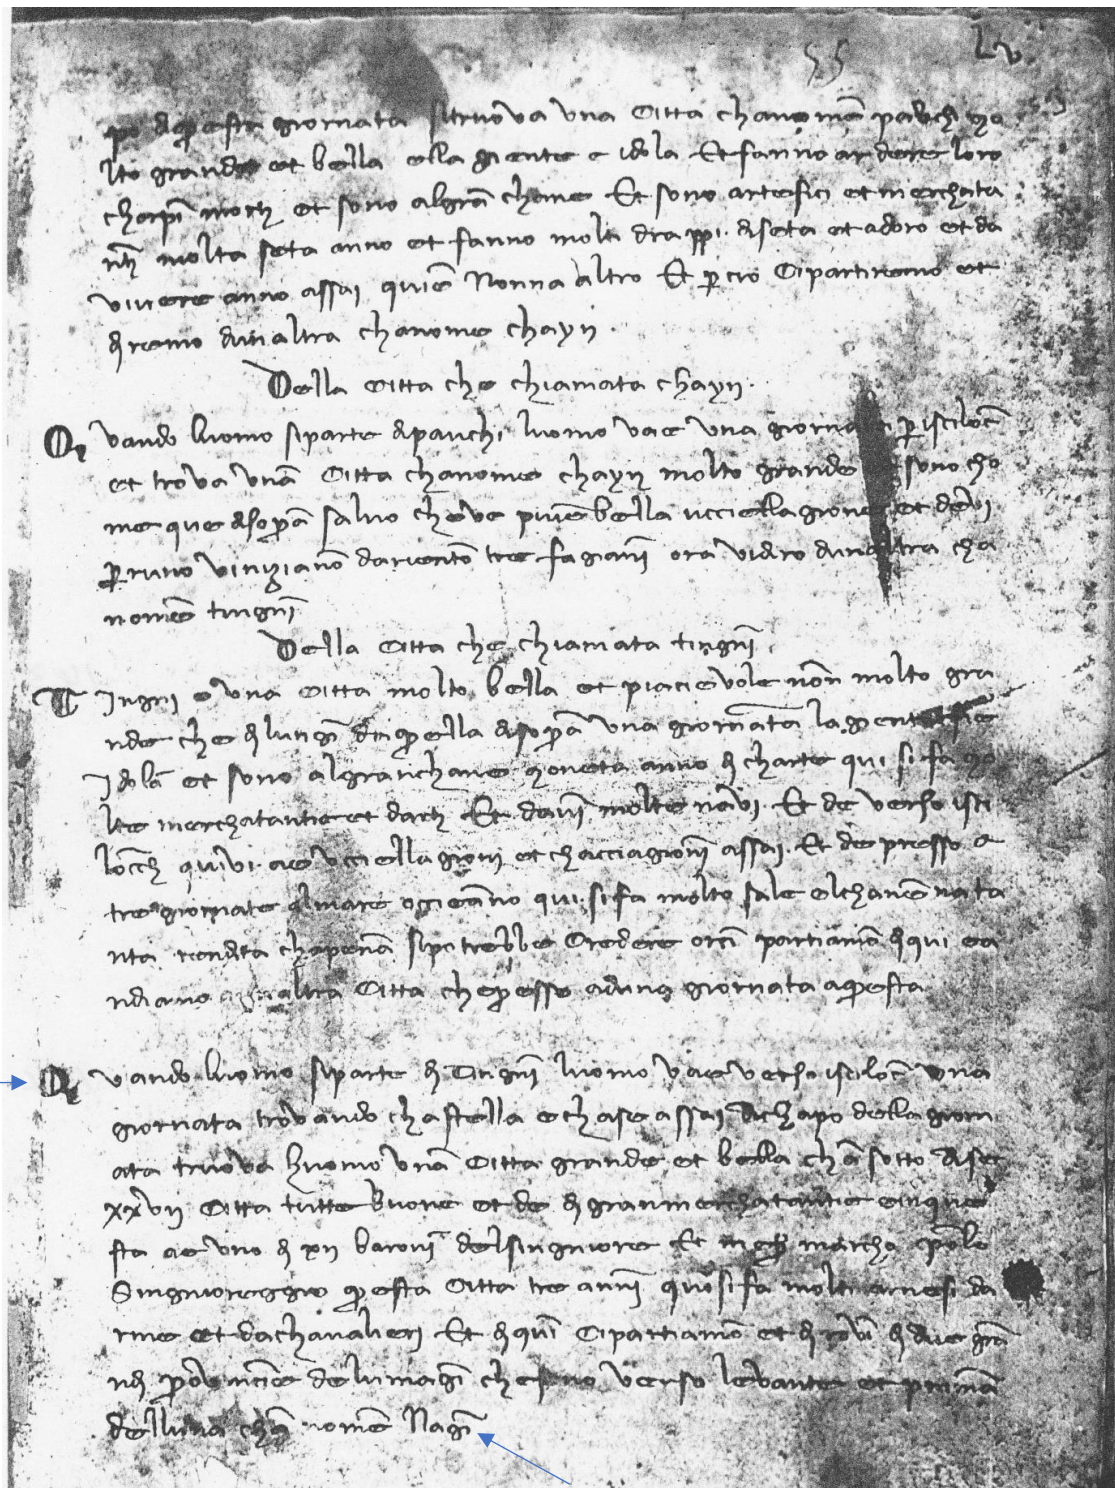 55 Lv
po di questa giornata si truova una citta cha nome pauchi mo
lto grande et bella ella giente e idola Et fanno ardere loro
chorpi morti et sono al gran chane Et sono artefici et merchata
nti molta seta anno et fanno molti drappi di seta et adoro et da
vivere anno assai quie nonna altro Et percio ci partiremo et
diremo dunaltra cha nome chayn
Della citta che chiamata chayn
Quando luomo siparte dipauchi luomo vae una giornata per isciloc
et trova una citta cha nome chayn molto grande sono cho
me que disopra salvo cheve piue bella ucciellagione et devi
per uno viniziano dariento tre fagiani ora vidiro dunaltra cha
nome tingni
Della citta che chiamata tingni
Tingni e una citta molto bella et piacievole non molto gra
nde che di lungi da quella disopra una giornata la gente
Idola et sono al gran chane moneta anno di charte qui si fa mo
lte merchatantie et darti Et davi molte navi Et de verso isci
locch quivi ae ucciellagioni et chacciagioni assai Et de presso a
tre giornate almare occieano qui si fa molto sale elchane na ta
nta rendita chapena sipotrebbe credere ora partiamo diqui ea
ndiamo altra citta che presso aduna giornata aquesta
Quando luomo siparte di Tingni luomo vae verso iscilocc una
giornata trovando chastella echase assai dichapo della giorn
ata truova luomo una citta grande et bella cha sotto dise
xxvii citta tutte buone et de di gran merchatantie einque
sta ae uno di xii baroni delsingniore Et march polo
Singnoreggio questa citta tre anni qui si fa molti arnesi da
rme et dachavalieri Et diqui ci partiamo et dirovi di due gra
ndi provincie delumagi che sono verso levante et prima
delluna cha nome Nagi